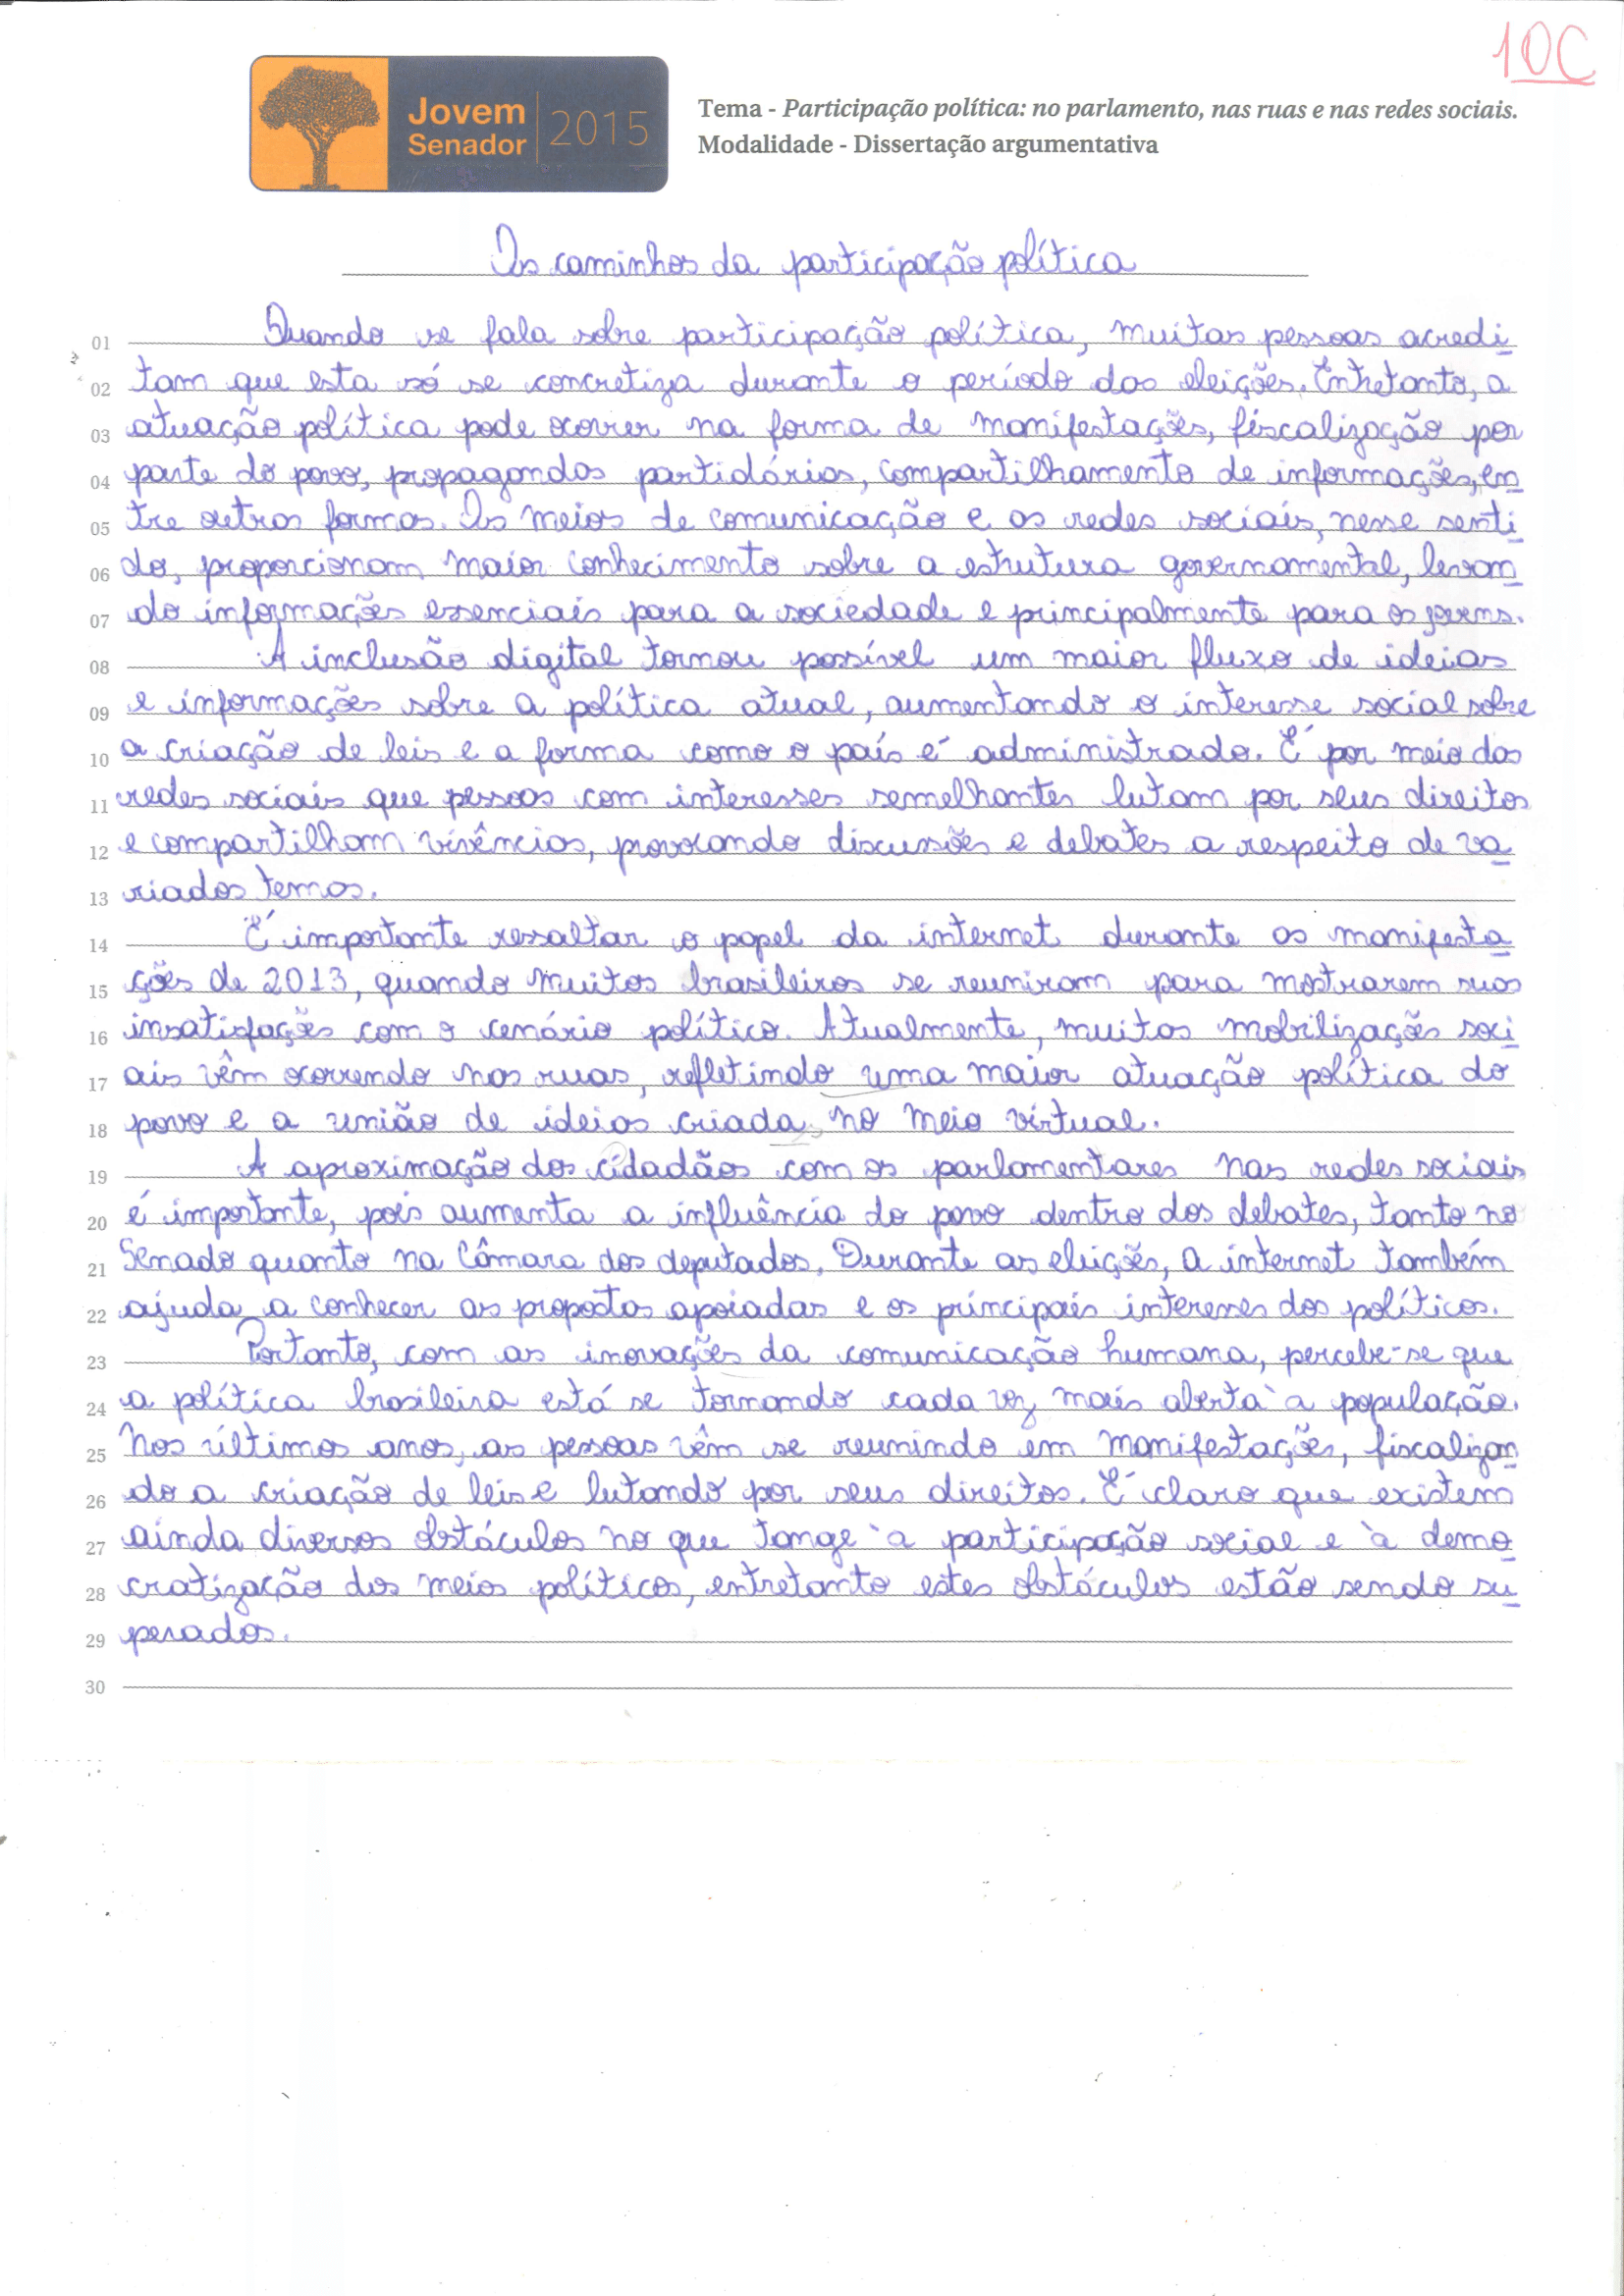 10C
Jovem
Senador
2015
Tema - Participação política: no parlamento, nas ruas e nas redes sociais.
Modalidade - Dissertação argumentativa
Os caminhos da participação política
01 Quando se fala sobre participação política, muitas pessoas acredi
02 tam que esta só se concretiza durante o período das eleições. Entretanto, a
03 atuação política pode ocorrer na forma de manifestações, fiscalização por
04 parte do povo, propagandas partidárias, compartilhamento de informações, en
05 tre outras formas. Os meios de comunicação e as redes sociais, nesse senti
06 do, proporcionam maior conhecimento sobre a estrutura governamental, levan
07 do informações essenciais para a sociedade e principalmente para os jovens.
08 A inclusão digital tornou possível um maior fluxo de ideias
09 e informações sobre a política atual, aumentando o interesse social sobre
10 a criação de leis e a forma como o país é administrado. É por meio das
11 redes sociais que pessoas com interesses semelhantes lutam por seus direitos
12 e compartilham vivências, provocando discussões e debates a respeito de va
13 riados temas.
14 É importante ressaltar o papel da internet durante as manifesta
15 ções de 2013, quando muitos brasileiros se reuniram para mostrarem suas
16 insatisfações com o cenário político. Atualmente, muitas mobilizações soci
17 ais vêm ocorrendo nas ruas, refletindo uma maior atuação política do
18 povo e a união de ideias criada, no meio virtual.
19 A aproximação dos cidadãos com os parlamentares nas redes sociais
20 é importante, pois aumenta a influência do povo dentro dos debates, tanto no
21 Senado quanto na Câmara dos deputados. Durante as eleições, a internet também
22 ajuda a conhecer as propostas apoiadas e os principais interesses dos políticos.
23 Portanto, com as inovações da comunicação humana, percebe-se que
24 a política brasileira está se tornando cada vez mais aberta à população.
25 Nos últimos anos, as pessoas vêm se reunindo em manifestações, fiscalizan
26 do a criação de leis e lutando por seus direitos. É claro que existem
27 ainda diversos obstáculos no que tange à participação social e à demo
28 cratização dos meios políticos, entretanto estes obstáculos estão sendo su
29 perados.
30